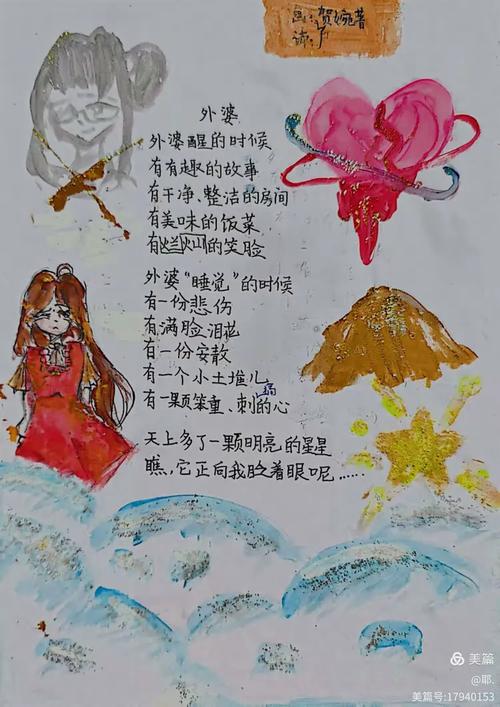 画:贺婉茜
诗:
外婆
外婆醒的时候
有有趣的故事
有干净、整洁的房间
有美味的饭菜
有灿烂的笑脸
外婆“睡觉”的时候
有一份悲伤
有满脸泪花
有一份安散
有一个小土堆儿
有一颗笨重、刺痛的心
天上多了一颗明亮的星星
瞧,它正向我眨着眼呢……
美篇
@耶.
美篇号:17940153